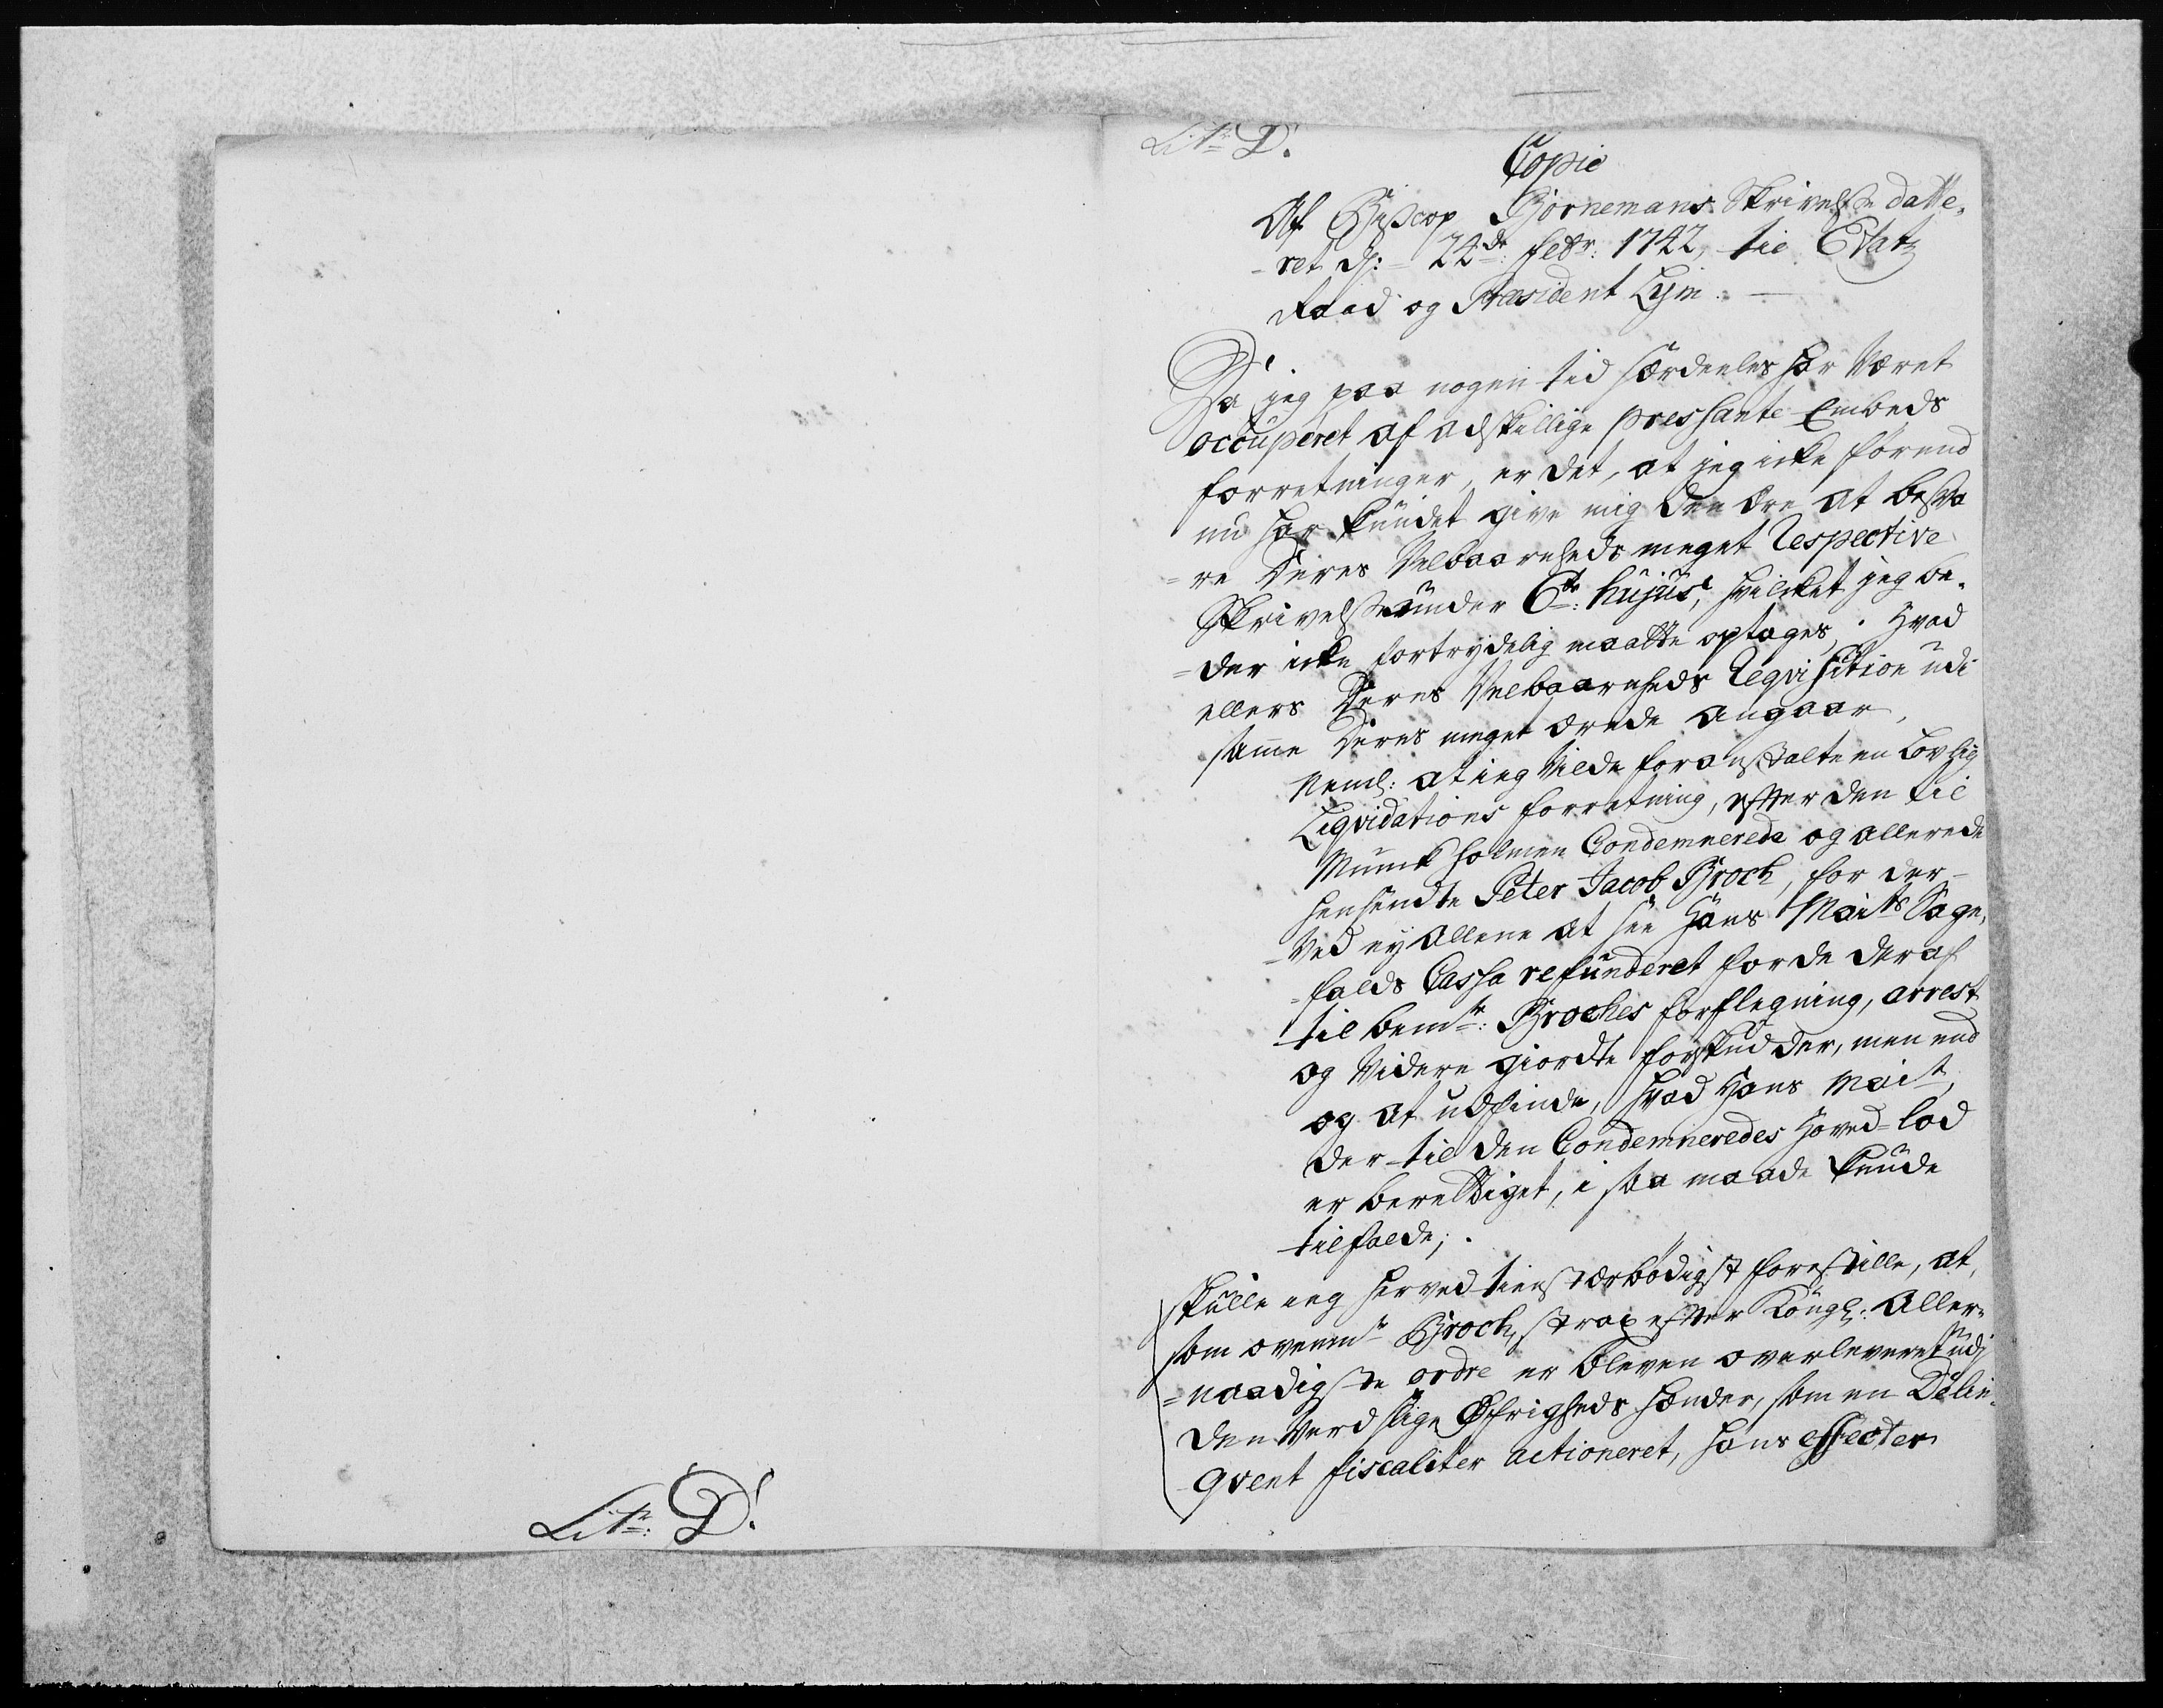 Litr D!
Copie
Af Biskop Bjørnemans Skrivelse datte-
-ret d: 22de febr: 1742, til Etatz
Raad og Præsident Lym. —
Da jeg paa nogen tid særdeeles har været
occuperet af adskillige pressante Embeds
forretninger, er det, at jeg icke forend
nu har kundet give mig den ære at besva
=re Deres Velbaarenheds meget Respective
Skrivelse under 6te hujus, hvilcket jeg be-
=der icke fortrydelig maatte optages, . Hvad
ellers Deres Velbaarenheds Reqvisition udi
samme Deres meget ærede angaar,
Neml: at ieg Vilde foranstalte en Lovlig
Liqvidations forretning, efter den til
Munckholmen Condemnerede og allerede
hensendte Peter Jacob Broch, for der-
-ved ey allene at see Hans Maits Sage-
-falds Cassa refunderet for de deraf
til bemte: Broches forflegning, arrest
og Videre giordte forskudder, men end
og at udfinde, hvad Hans Mait,
der til den Condemneredes Hoved-lod
er berettiget, i saa maade kunde
tilfalde; .
skulle ieg herved tienstærbødigst forestille, at,
som ovenmte Broch, strax efter Kongl: Aller-
=naadigste ordre er bleven overleveret udj
den Verdslige Øfrigheds hænder, som en Delin-
qvent fiscaliter actioneret, hans effecter
Litr: D!